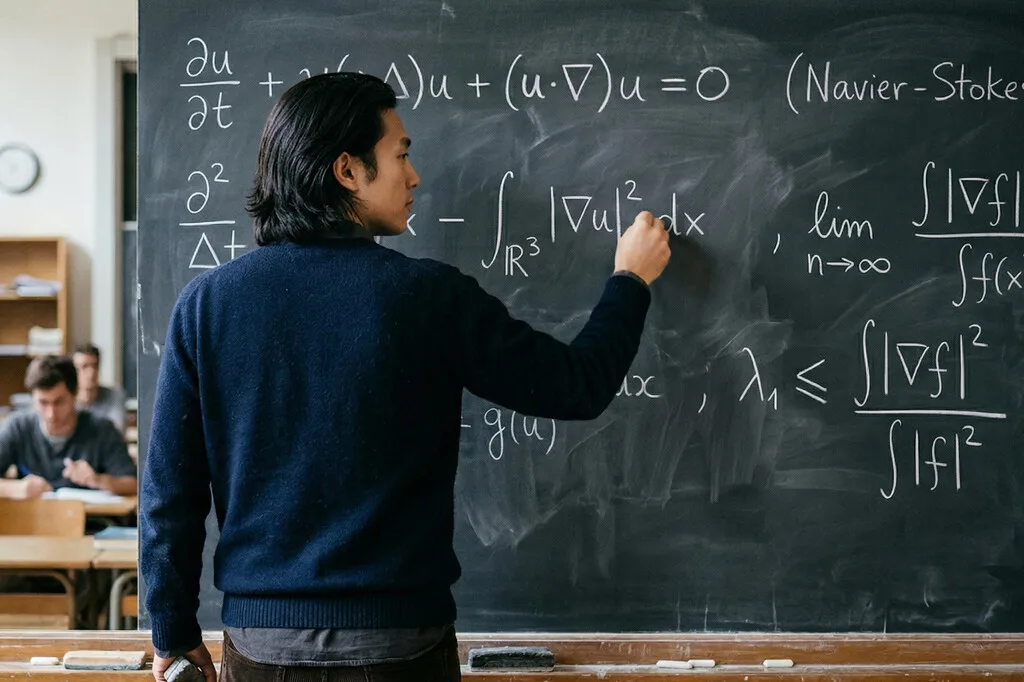 ∂u/∂t + (Δ)u + (u·∇)u = 0 (Navier-Stoke
∂²/Δt x - ∫_ℝ³ |∇u|² dx , lim n→∞ ∫|∇f| / ∫f(x
g(u) dx , λ₁ ≤ ∫|∇f|² / ∫|f|²